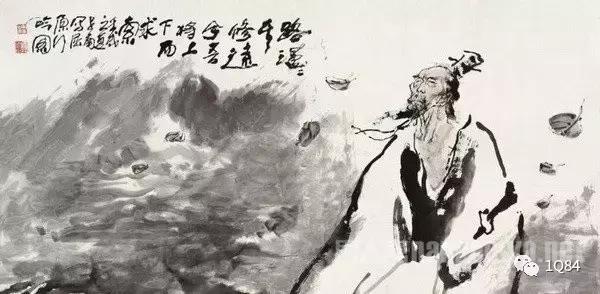 路漫〻
其
修遠
兮吾
将上
下而
求
索
写屈
原行
吟圖
1Q84